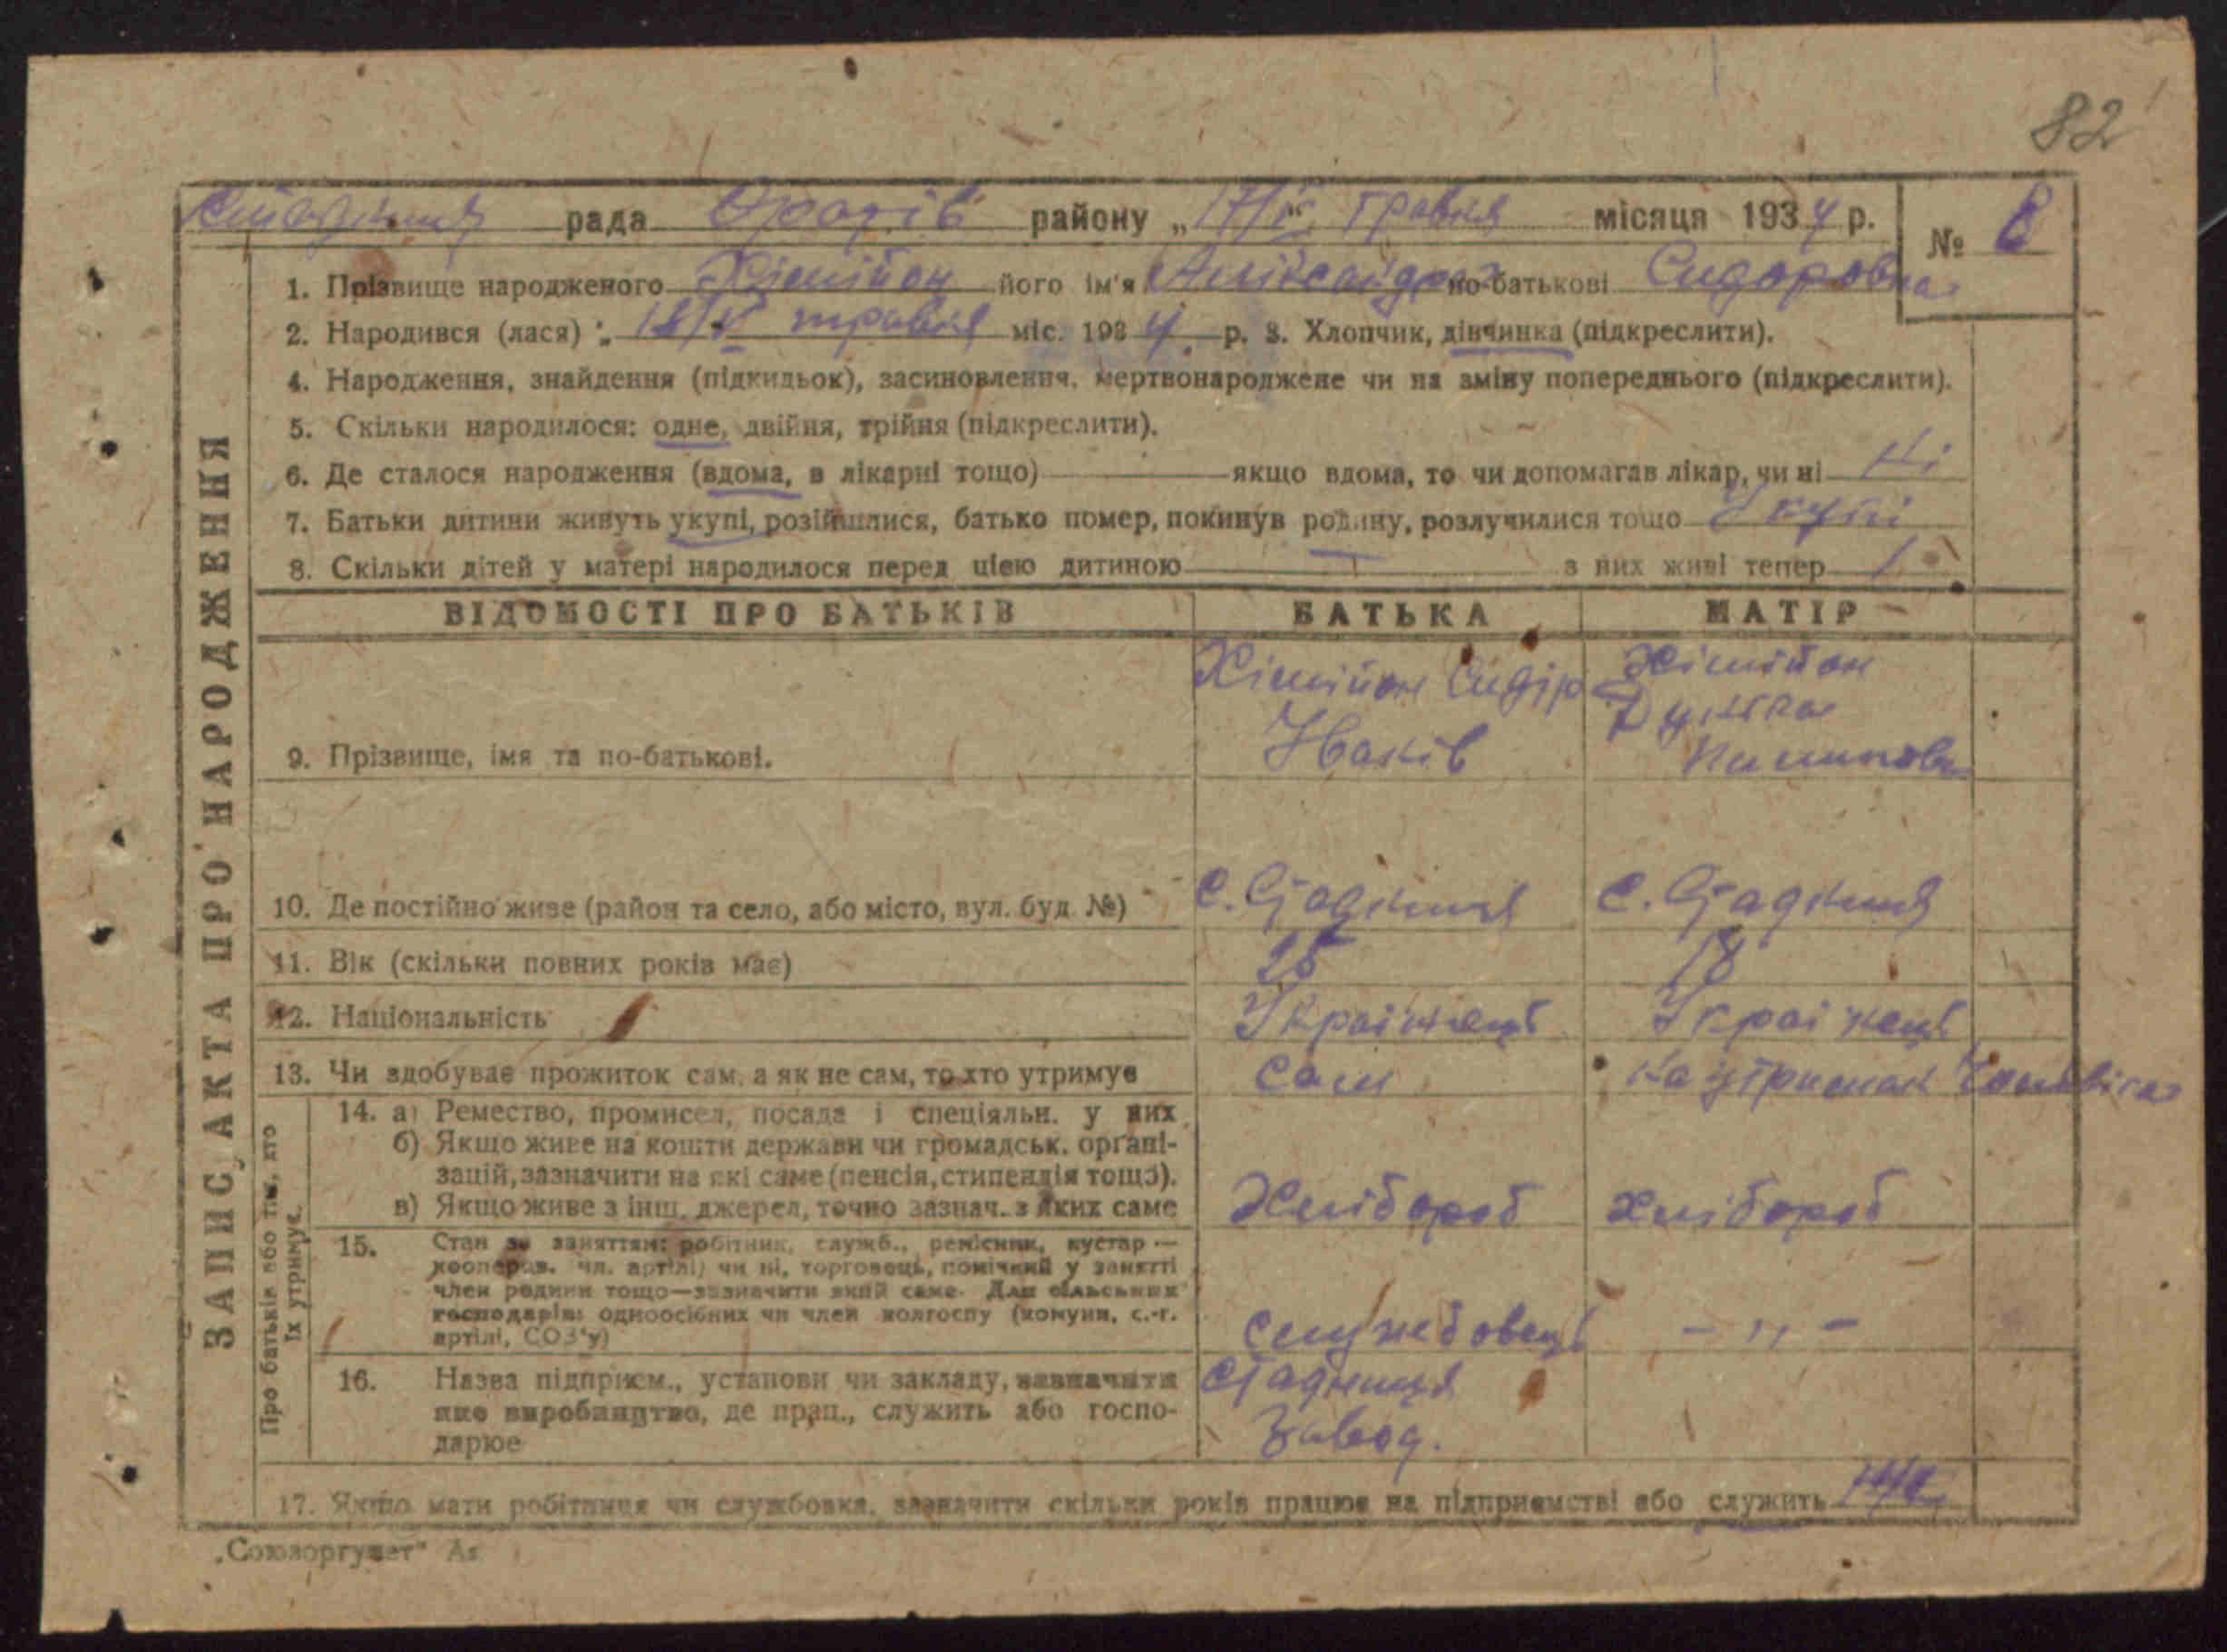 82
рада Оратів району „17/V" травня місяця 1934 р.
№ 8
1. Прізвище народженого його ім'я Аліксандра по-батькові Сидоровна
2. Народився (лася) „ травня міс. 1934 р. 3. Хлопчик, дівчинка (підкреслити).
4. Народження, знайдення (підкидьок), засиновлення, мертвонароджене чи на зміну попереднього (підкреслити).
5. Скільки народилося: одне, двійня, трійня (підкреслити).
6. Де сталося народження (вдома, в лікарні тощо) якщо вдома, то чи допомагав лікар, чи ні Ні
7. Батьки дитини живуть укупі, розійшлися, батько помер, покинув родину, розлучилися тощо Укупі
8. Скільки дітей у матері народилося перед цією дитиною — з них живі тепер 1
ЗАПИС АКТА ПРО НАРОДЖЕННЯ
ВІДОМОСТІ ПРО БАТЬКІВ БАТЬКА МАТІР
9. Прізвище, імя та по-батькові. Сидір
10. Де постійно живе (район та село, або місто, вул. буд №) с. Стадниця с. Стадниця
11. Вік (скільки повних років має) 25 18
12. Національність Українець Українець
13. Чи здобуває прожиток сам, а як не сам, то хто утримує Сам На утриман Чоловіка
Про батьків або тих, хто їх утримує.
14. а) Ремество, промисел, посада і спеціяльн. у них
б) Якщо живе на кошти держави чи громадськ. органі-
зацій, зазначити на які саме (пенсія, стипендія тощо).
в) Якщо живе з інш. джерел, точно зазнач. з яких саме Хлібороб хлібороб
15. Стан за заняттям: робітник, служб., ремісник, кустар —
кооперов. чл. артілі) чи ні, торговець, помічний у занятті
член родини тощо—зазначити який саме. Для сільських
господарів: одноосібних чи член колгоспу (комуни, с.-г.
артілі, СОЗ'у) Служебовець — „ —
16. Назва підприєм., установи чи закладу, зазначити
яке виробництво, де прац., служить або госпо-
дарює Стадниця
Завод.
17. Якщо мати робітниця чи службовка, зазначити скільки років працює на підприємстві або служить
„Союзоргучет"